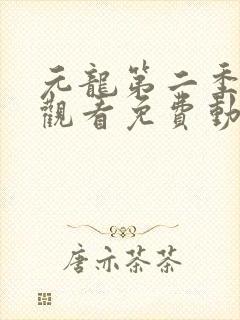 元龍第二季
觀看免費動
唐亦茶茶